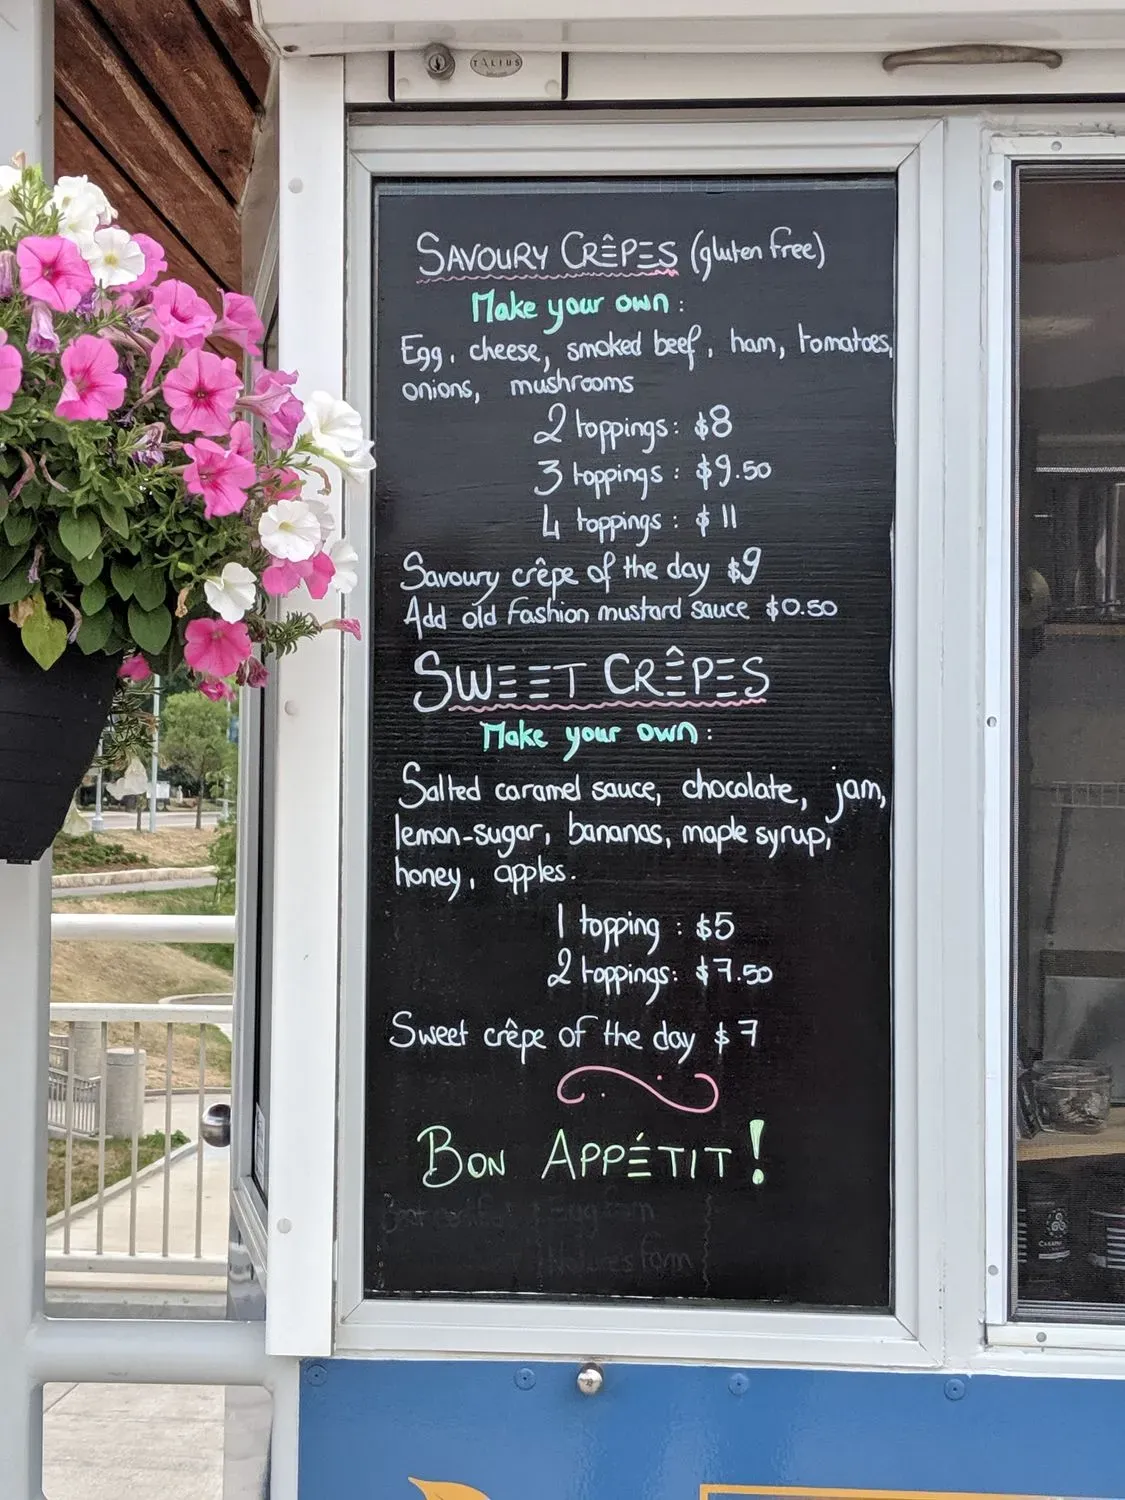 TALIUS
SAVOURY CRÊPES (gluten free)
Make your own:
Egg, cheese, smoked beef, ham, tomatoes,
onions, mushrooms
2 toppings: $8
3 toppings: $9.50
4 toppings: $11
Savoury crêpe of the day $9
Add old fashion mustard sauce $0.50
SWEET CRÊPES
Make your own:
Salted caramel sauce, chocolate, jam,
lemon-sugar, bananas, maple syrup,
honey, apples.
1 topping: $5
2 toppings: $7.50
Sweet crêpe of the day $7
BON APPÉTIT!